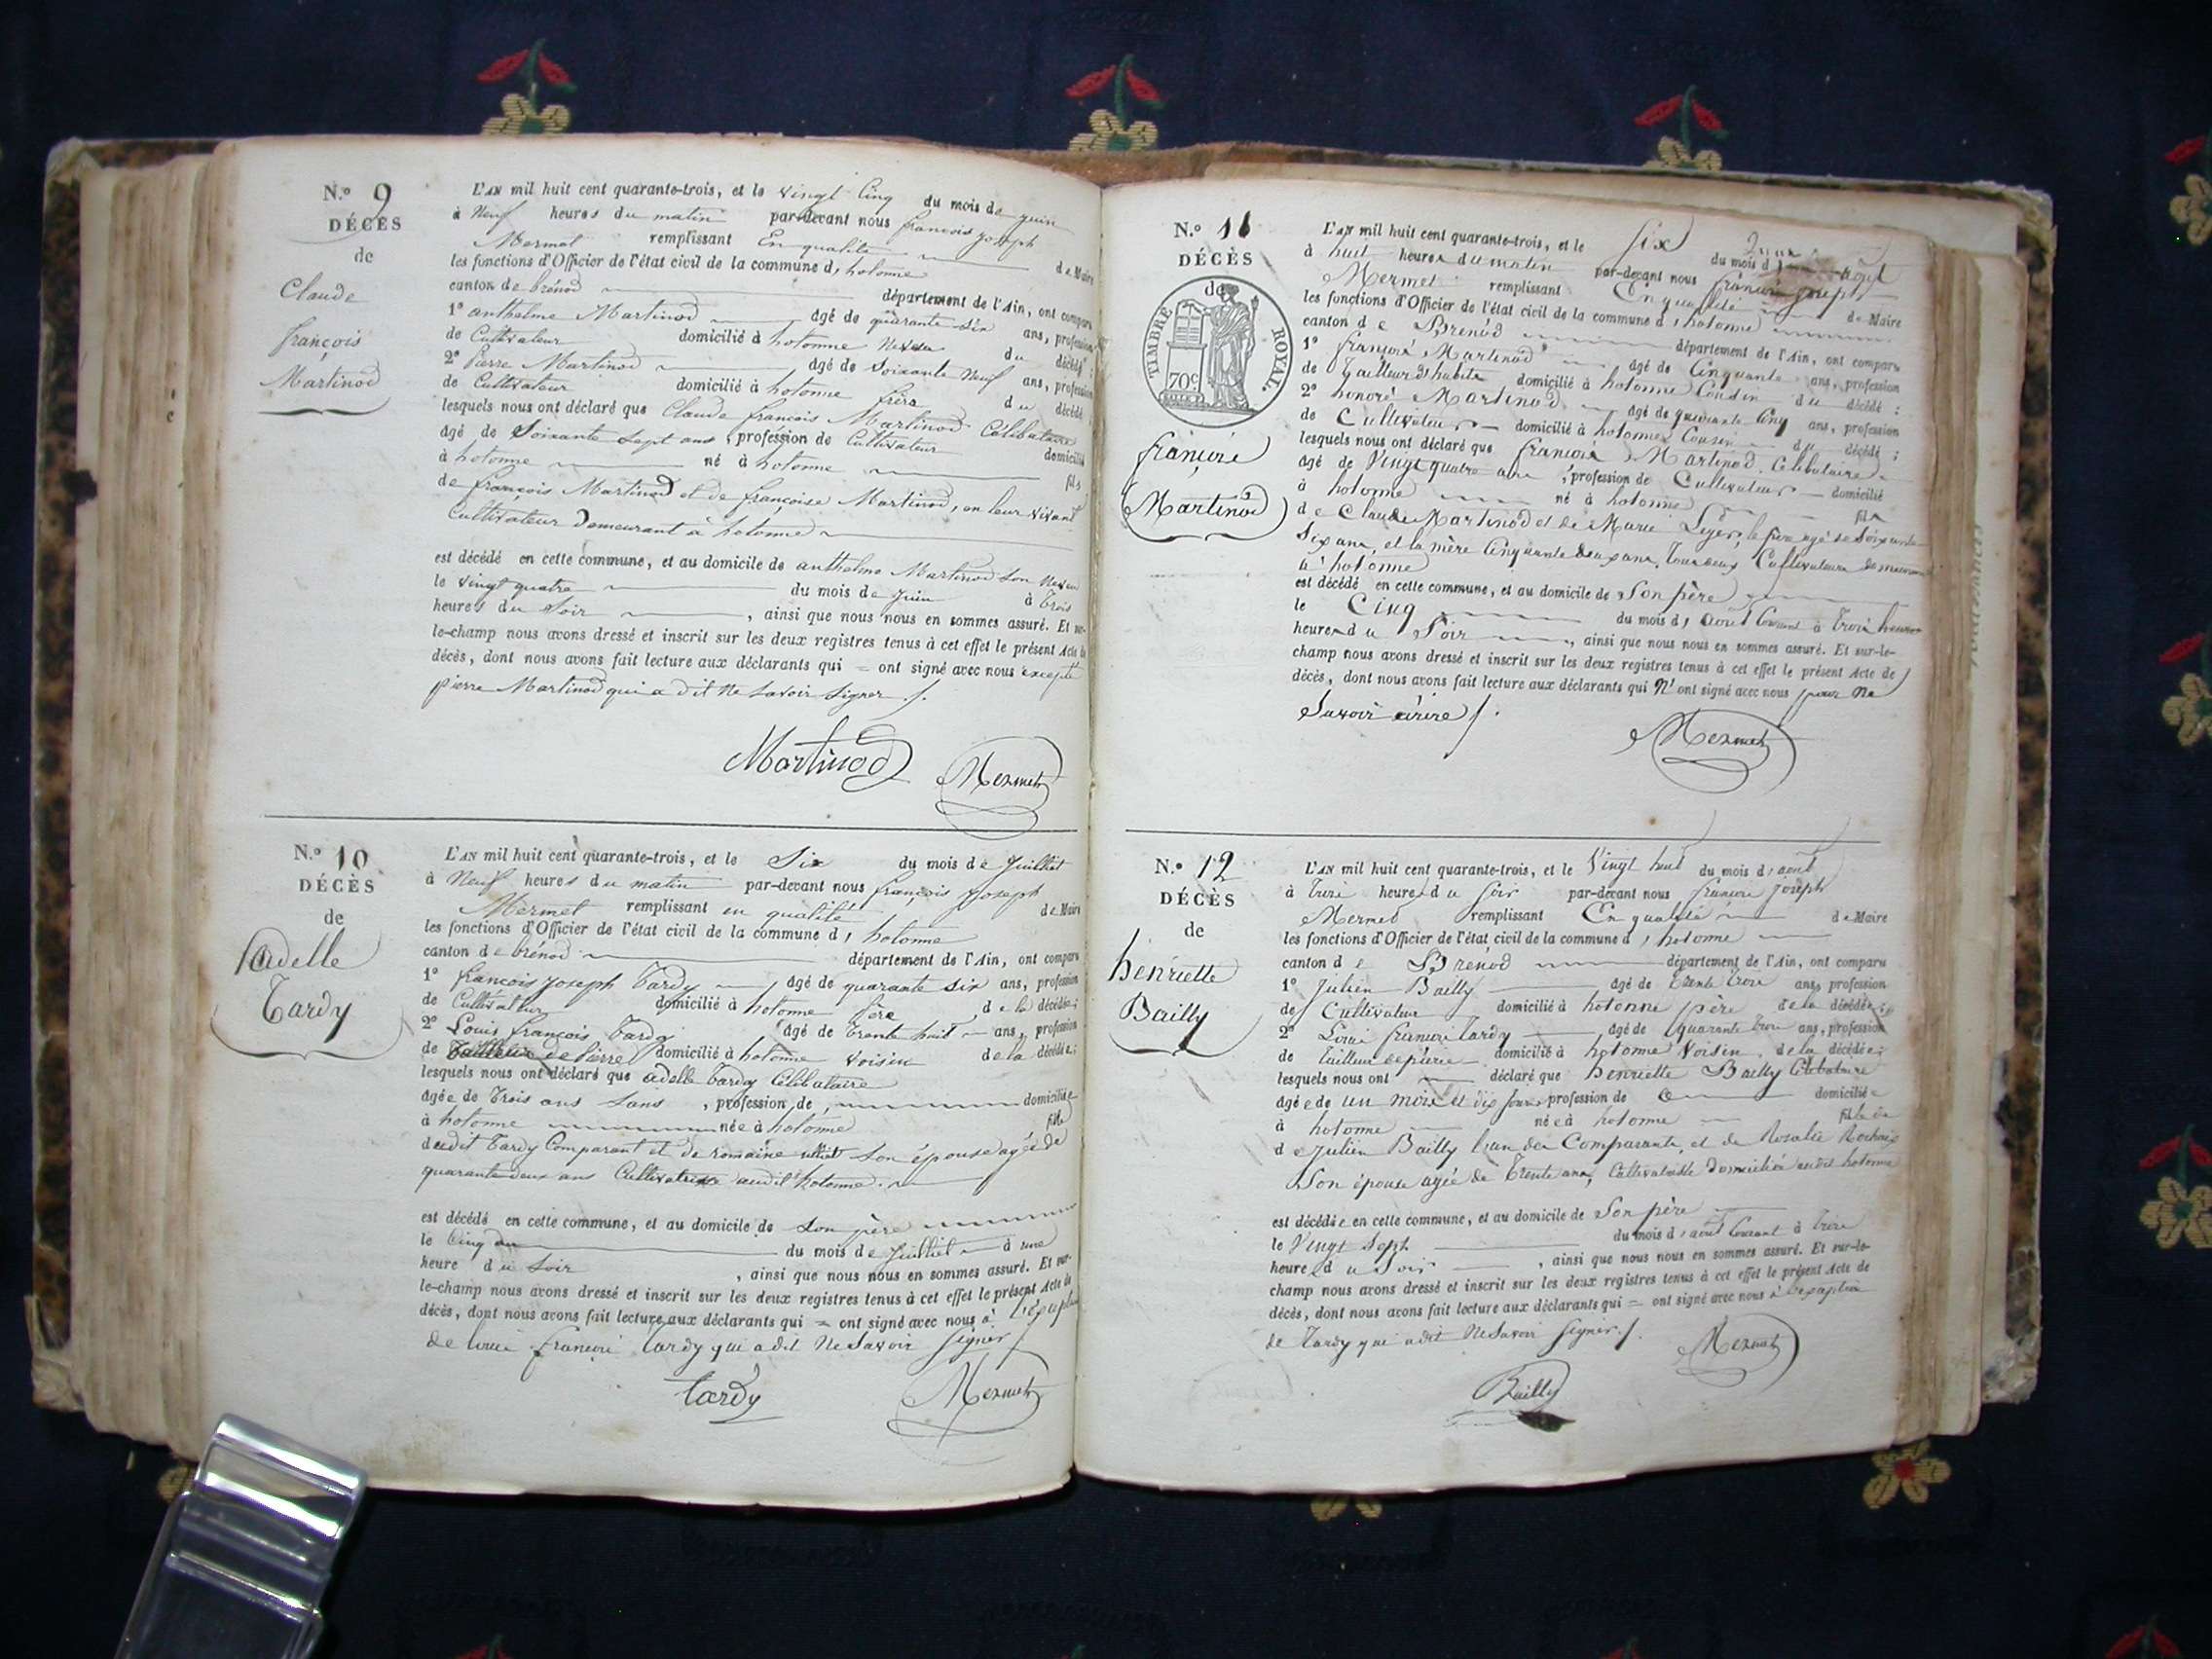 N.º 9
DÉCÈS
de
Claude
françois
Martinod
L'AN mil huit cent quarante-trois, et le vingt Cinq du mois de juin
à Neuf heures du matin par-devant nous françois joseph
Mermet remplissant En qualité de Maire
les fonctions d'Officier de l'état civil de la commune d, hotonne
canton de brénod département de l'Ain, ont comparu
1º anthelme Martinod âgé de quarante six ans, profession
de Cultivateur domicilié à hotonne neveu du décédé ;
2º Pierre Martinod âgé de Soixante Neuf ans, profession
de Cultivateur domicilié à hotonne frère du décédé ;
lesquels nous ont déclaré que Claude françois Martinod Célibataire
âgé de Soixante Sept ans , profession de Cultivateur domicilié
à hotonne né à hotonne fils
de françois Martinod et de françoise Martinod, en leur vivant
Cultivateur Demeurant à hotonne
est décédé en cette commune, et au domicile de anthelme Martinod Son Neveu
le vingt quatre du mois de juin à trois
heures du Soir , ainsi que nous nous en sommes assuré. Et sur-
le-champ nous avons dressé et inscrit sur les deux registres tenus à cet effet le présent Acte de
décès, dont nous avons fait lecture aux déclarants qui = ont signé avec nous excepté
pierre Martinod qui a dit Ne Savoir Signer ./.
Martinod Mermet
N.º 10
DÉCÈS
de
adelle
Tardy
L'AN mil huit cent quarante-trois, et le Six du mois de Juilliet
à Neuf heures du matin par-devant nous françois joseph
Mermet remplissant en qualité de Maire
les fonctions d'Officier de l'état civil de la commune d, hotonne
canton de brénod département de l'Ain, ont comparu
1º françois joseph Tardy âgé de quarante six ans, profession
de Cultivateur domicilié à hotonne père de la décédée ;
2º Louis françois Tardy âgé de Trente huit ans, profession
de Tailleur de Pierre domicilié à hotonne voisin de la décédée ;
lesquels nous ont déclaré que adelle Tardy Célibataire
âgée de Trois ans Sans , profession de , domiciliée
à hotonne née à hotonne fille
dudit Tardy Comparant et de romaine Son épouse agée de
quarante deux ans Cultivatrice audit hotonne.
est décédé en cette commune, et au domicile de Son père
le Cinq du mois de Juilliet à une
heure du Soir , ainsi que nous nous en sommes assuré. Et sur-
le-champ nous avons dressé et inscrit sur les deux registres tenus à cet effet le présent Acte de
décès, dont nous avons fait lecture aux déclarants qui = ont signé avec nous à l'éxception
de Louis françois Tardy qui a dit Ne Savoir Signer /
tardy Mermet
N.º 11
DÉCÈS
de
TIMBRE ROYAL.
70c
françois
Martinod
L'AN mil huit cent quarante-trois, et le Six du mois d août
à huit heures du matin par-devant nous françois joseph
Mermet remplissant En qualité de Maire
les fonctions d'Officier de l'état civil de la commune d, hotonne
canton de Brenod département de l'Ain, ont comparu
1º françois Martinod âgé de Cinquante ans, profession
de Tailleur d'habits domicilié à hotonne Cousin du décédé ;
2º honoré Martinod âgé de quarante Cinq ans, profession
de Cultivateur domicilié à hotonne Cousin du décédé ;
lesquels nous ont déclaré que françois Martinod Célibataire
âgé de Vingt quatre ans , profession de Cultivateur domicilié
à hotonne né à hotonne fils
de Claude Martinod et de Marie Leger, le père agé de Soixante
Six ans, et la mère Cinquante deux ans, tous deux Cultivateurs demeurant
à hotonne
est décédé en cette commune, et au domicile de Son père
le Cinq du mois d, août Courant à trois heures
heures du Soir , ainsi que nous nous en sommes assuré. Et sur-le-
champ nous avons dressé et inscrit sur les deux registres tenus à cet effet le présent Acte de
décès, dont nous avons fait lecture aux déclarants qui N' ont signé avec nous pour Ne
Savoir écrire /.
Mermet
N.º 12
DÉCÈS
de
henriette
Bailly
L'AN mil huit cent quarante-trois, et le Vingt huit du mois d, août
à trois heures du Soir par-devant nous françois joseph
Mermet remplissant En qualité de Maire
les fonctions d'Officier de l'état civil de la commune d, hotonne
canton de Brenod département de l'Ain, ont comparu
1º Julien Bailly âgé de trente trois ans, profession
de Cultivateur domicilié à hotonne père de la décédée ;
2º Louis françois tardy âgé de quarante trois ans, profession
de tailleur de pierre domicilié à hotonne Voisin de la décédée ;
lesquels nous ont déclaré que henriette Bailly Célibataire
âgée de un mois et dix jours profession de domiciliée
à hotonne née à hotonne fille
de Julien Bailly l'un des Comparants et de Rosalie
Son épouse agée de Trente ans, domiciliés audit hotonne
est décédée en cette commune, et au domicile de Son père
le Vingt Sept du mois d, août Courant à trois
heures du Soir , ainsi que nous nous en sommes assuré. Et sur-le-
champ nous avons dressé et inscrit sur les deux registres tenus à cet effet le présent Acte de
décès, dont nous avons fait lecture aux déclarants qui = ont signé avec nous à l'exception
de Tardy qui a dit Ne Savoir Signer ./.
Mermet
Bailly